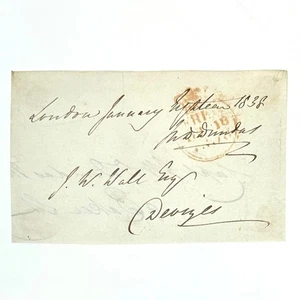 London January Eighteen 1838
FREE
18
W. D. Dundas
J. W. Hall Esq
Devizes